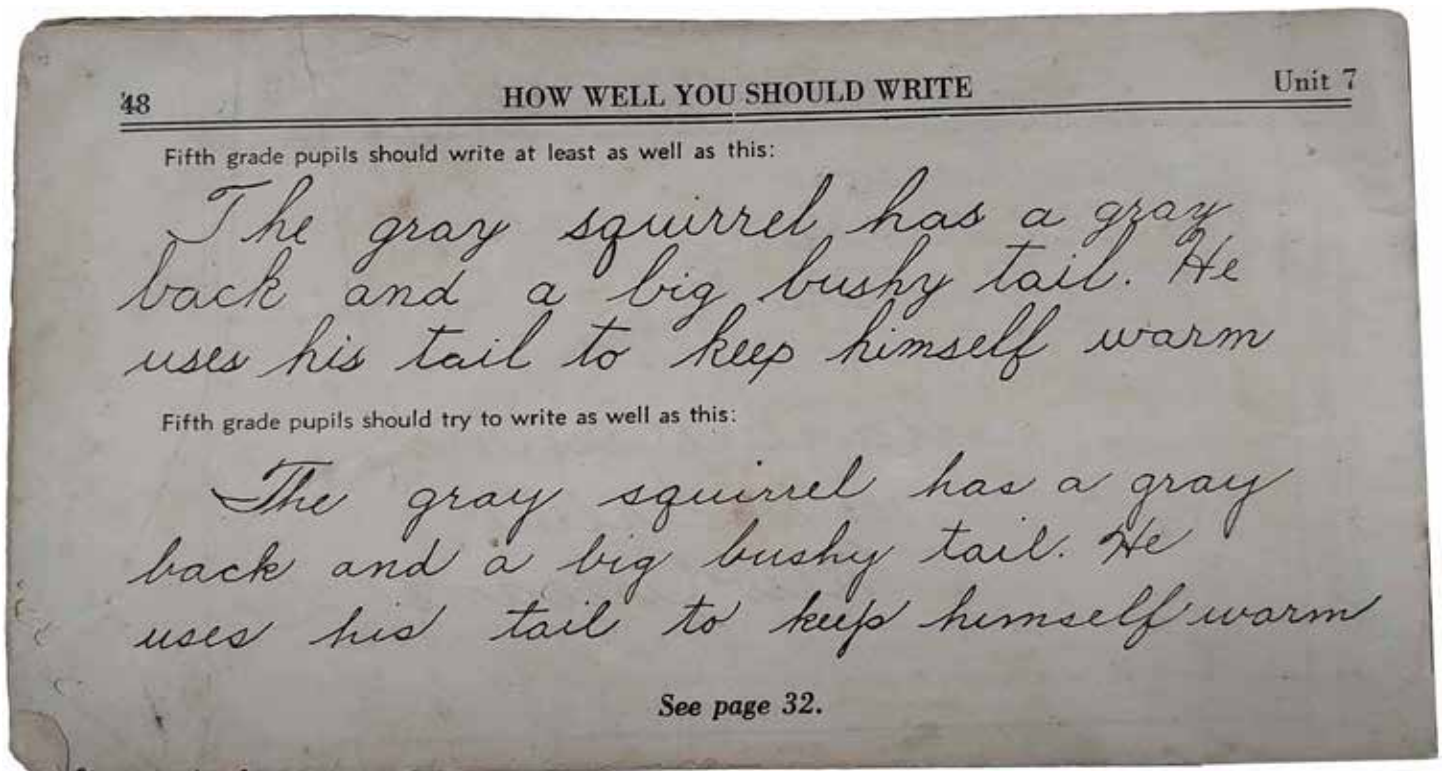 48 HOW WELL YOU SHOULD WRITE Unit 7
Fifth grade pupils should write at least as well as this:
The gray squirrel has a gray
back and a big bushy tail. He
uses his tail to keep himself warm
Fifth grade pupils should try to write as well as this:
The gray squirrel has a gray
back and a big bushy tail. He
uses his tail to keep himself warm
See page 32.